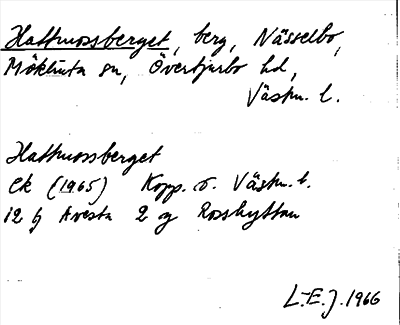 Hattmossberget, berg, Nässelbo,
Möklinta sn, Övertjurbo hd,
Västm. l.
Hattmossberget
Ek (1965) Kopp. o. Västm. l.
12 G Avesta 2 g Rosshyttan
L.E.J. 1966